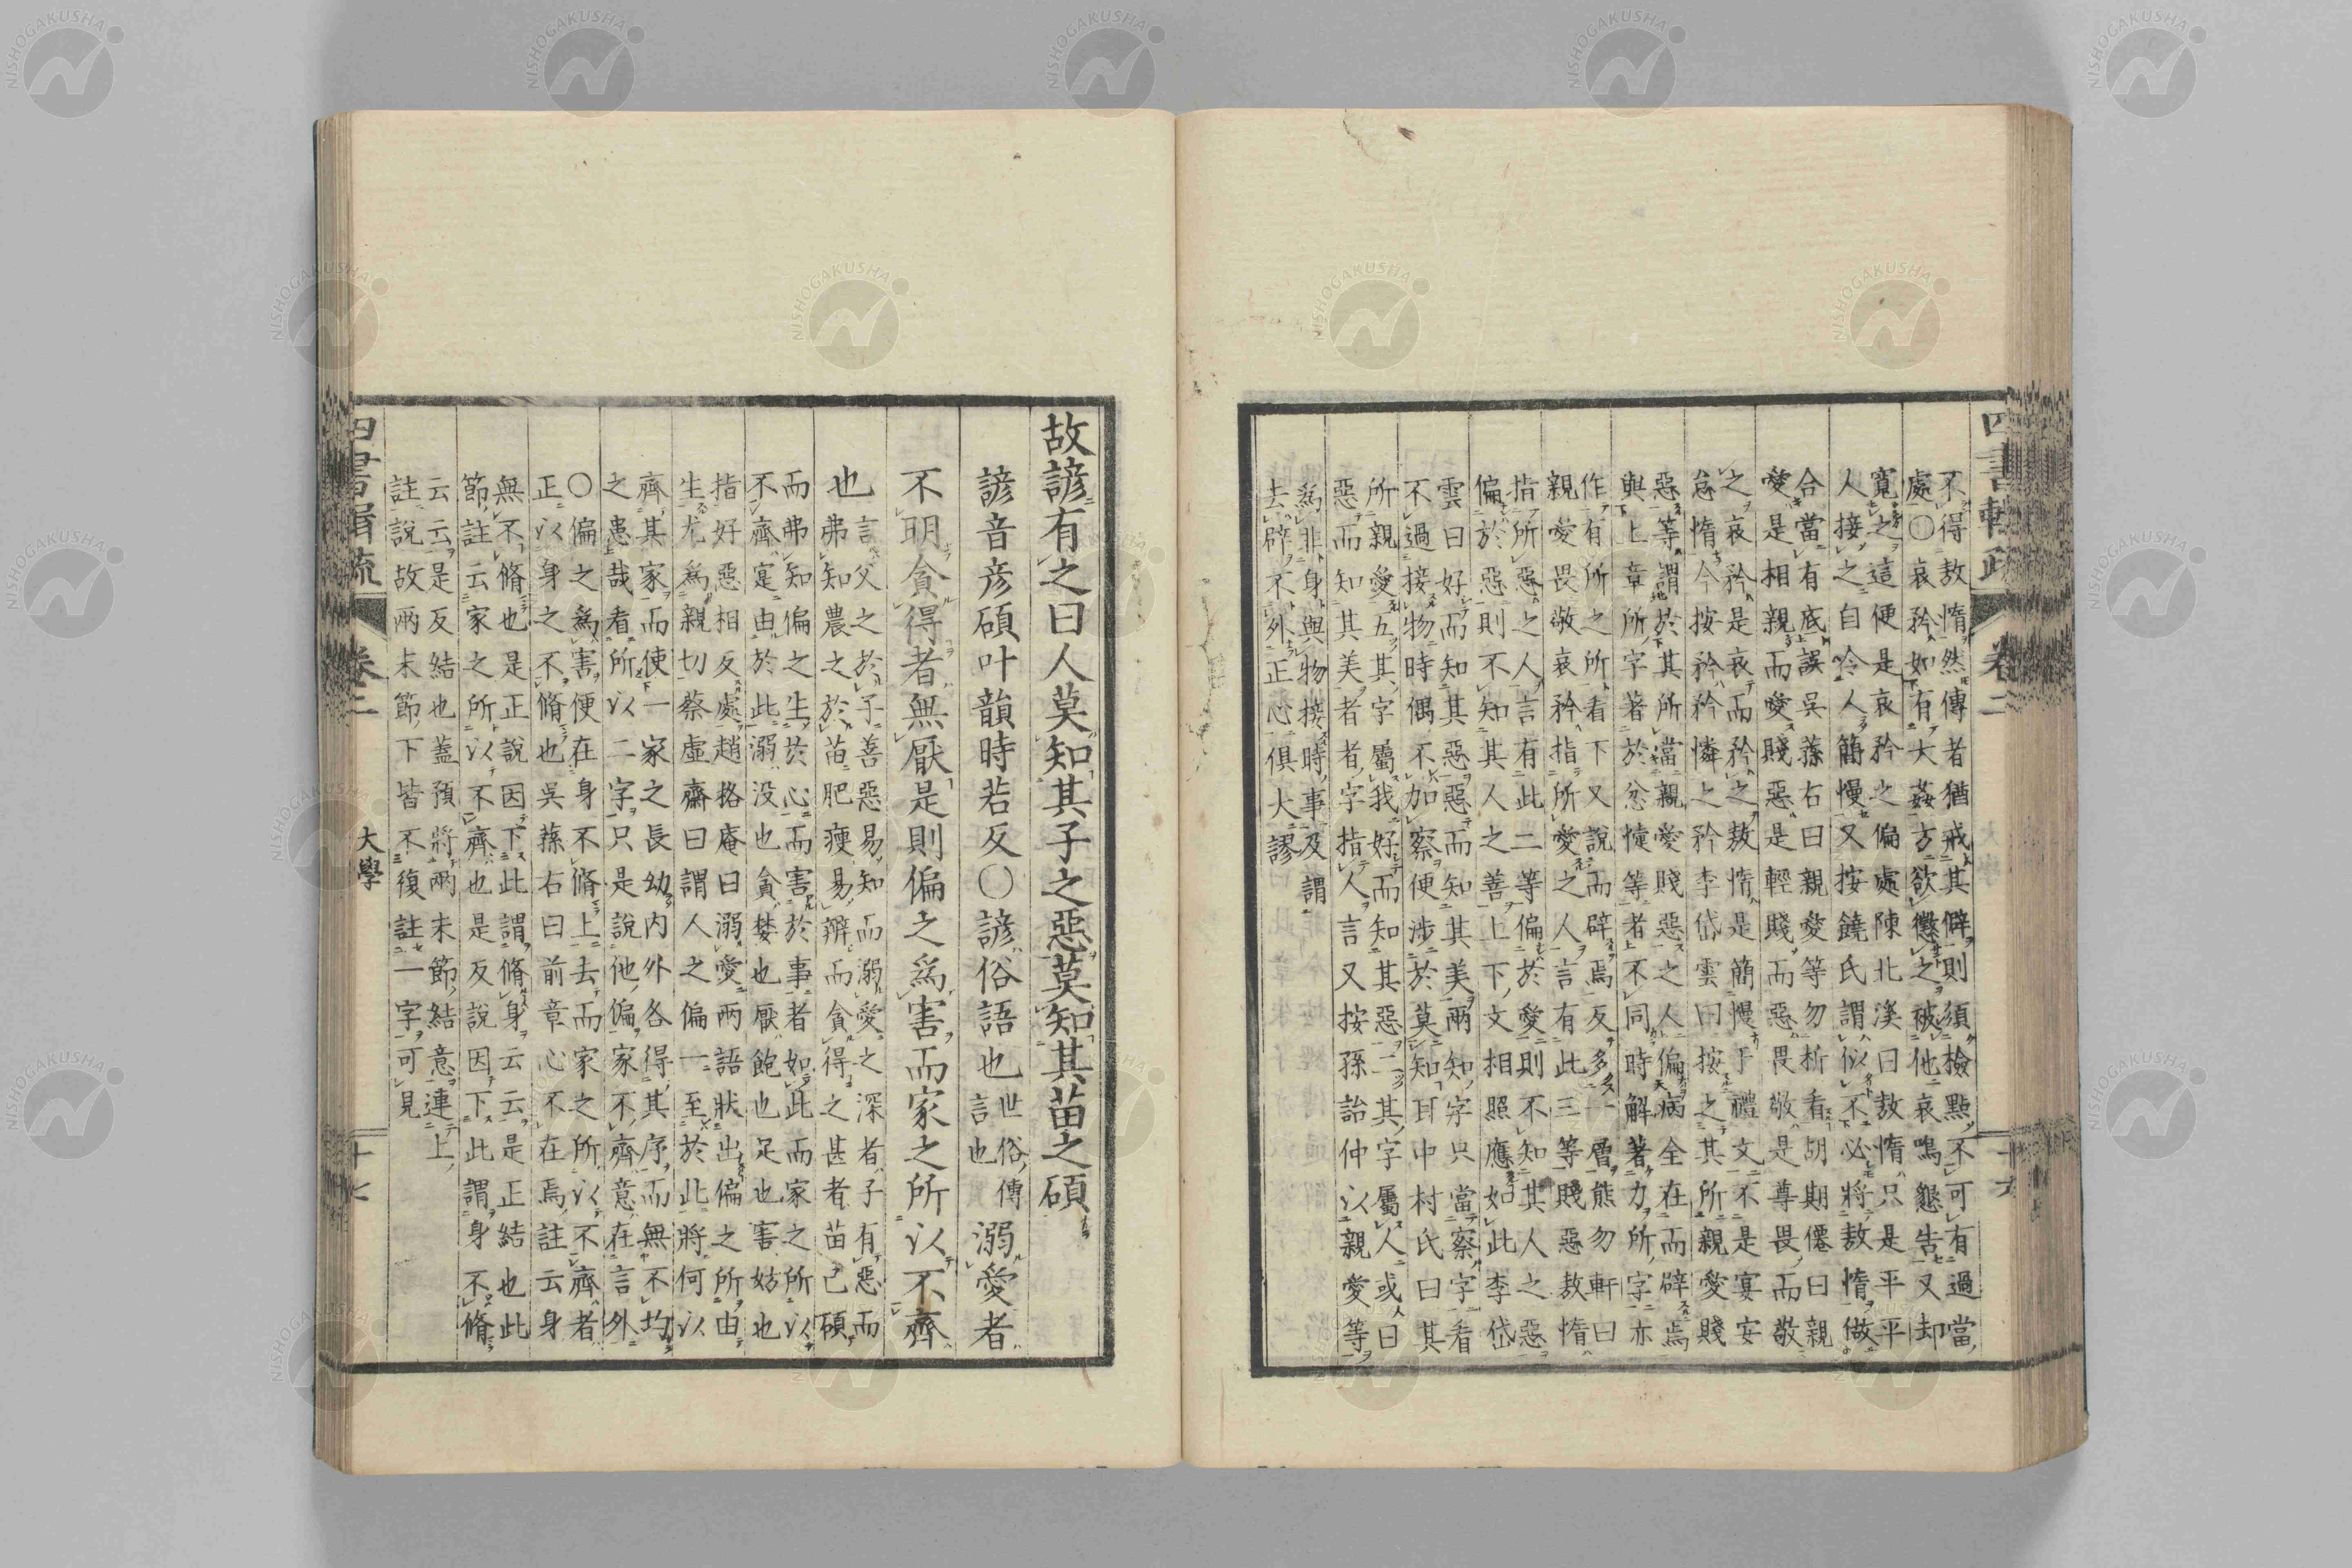 四書輯疏
卷二
不得敖惰然傳者猶戒其僻則須檢點不可有過當
處○哀矜如有大姦方欲懲之被他哀鳴懇告又却
寬之這便是哀矜之偏處陳北溪曰敖惰只是平平
人接之自令人簡慢又按饒氏謂似不必將敖惰做
合當有底誤吳蓀右曰親愛等勿析看胡期僊曰親
愛是相親而愛賤惡是輕賤而惡畏敬是尊畏而敬
之哀矜是哀而矜之敖惰是簡慢于禮文不是宴安
怠惰今按矜矜憐之矜李岱雲曰按之其所親愛賤
惡等謂於其所當親愛賤惡之人偏病全在而辟焉
與上章所字著於忿懥等者不同時解著力所字亦
作有所之所看下又說而辟焉反多一層熊勿軒曰
親愛畏敬哀矜指所愛之人言有此三等賤惡敖惰
指所惡之人言有此二等偏於愛則不知其人之惡
偏於惡則不知其人之善上下文相照應如此李岱
雲曰好而知其惡惡而知其美兩知字只當察字看
不過接物時偶不加察便涉於莫知耳中村氏曰其
所親愛五其字屬我好而知其惡二其字屬人或曰
惡而知其美者者字指人言又按孫詒仲以親愛等
為非身與物接時事及謂
去辟不外正心俱大謬
故諺有之曰人莫知其子之惡莫知其苗之碩
諺音彥碩叶韻時若反○諺俗語也
世俗傳
言也
溺愛者
不明貪得者無厭是則偏之為害而家之所以不齊
也
言父之於子善惡易知而溺愛之深者子有惡而
弗知農之於苗肥瘦易辨而貪得之甚者苗已碩
而弗知偏之生於心而害於事者如此而家之所以
不齊寔由於此溺没也貪婪也厭飽也足也害妨也
指好惡相反處趙格庵曰溺愛兩語狀出偏之所由
生尤為親切蔡虛齋曰謂人之偏一至於此將何以
齊其家而使一家之長幼內外各得其序而無不均
之患哉者所以二字只是說他偏家不齊意在言外
○偏之為害便在身不脩上去而家之所以不齊者
正以身之不脩也吳蓀右曰前章心不在焉註云身
無不脩也是正說因下此謂脩身云云是正結也此
節註云家之所以不齊也是反說因下此謂身不脩
云云是反結也蓋預將兩末節結意連上
註說故兩末節下皆不復註一字可見
四書輯疏
卷二
大學
十七